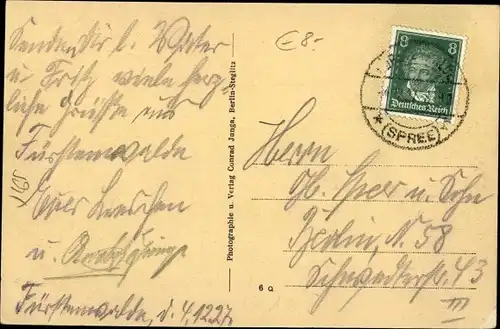 Senden Dir l. Vater
u. Fritz viele herz-
liche Grüße aus
Fürstenwalde
Euer Lenchen
u.
Fürstenwalde, d. 4.12.27.
Photographie u. Verlag Conrad Junga, Berlin-Steglitz
€8-
8 8
Deutsches Reich
* (SPREE) *
Herrn
u. Sohn
Berlin, N. 58
Schwedterstr. 43
III
6 Q